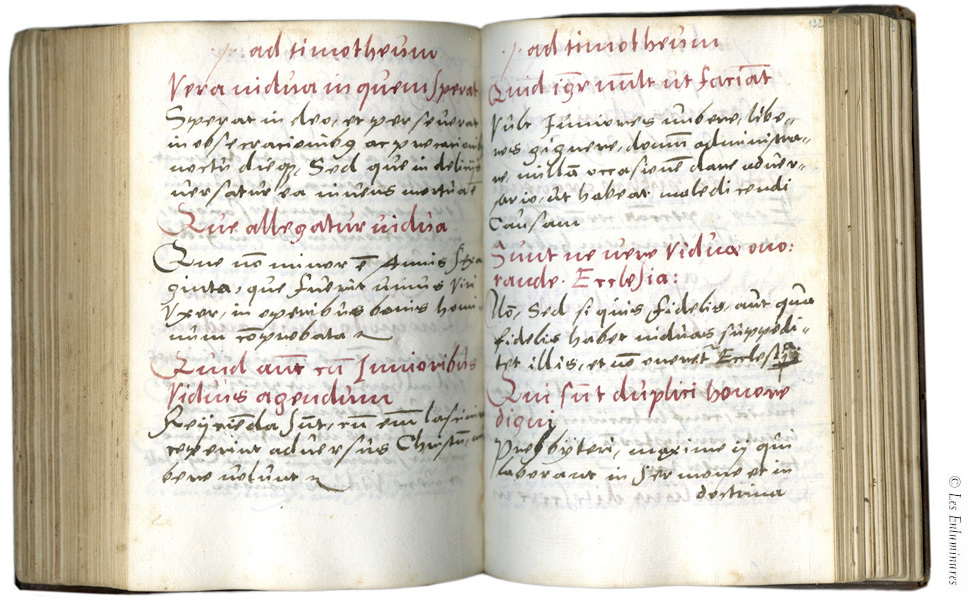 ad timotheum
Vera uidua in quem sperat
Sperat in deo, et perseuerat
in obsecrationibꝫ ac precationibꝫ
noctu dieqꝫ, Sed que in delitijs
uersatur ea uiuens mortua ē
Que allegatur uidua
Que nō minor ē Annis sexa
ginta, que fuerit unius Viri
Vxor, in operibus bonis homi
num cōprobata
Quid aut̄ cū Iunioribus
Viduis agendum
Reijciēda sūt, cū em̄ lasciuire
ceperint aduersus Christū,
bere uolunt
ad timotheum
Quid igr̄ uult ut faciāt
Vult Iuniores nubere, libe-
ros gignere, domū administra-
re nullā occasionē dare aduer-
sario, ut habeat maledicendi
Causam
Sunt ne uere Vidue ono:
rande Ecclesia:
Nō, Sed si quis fidelis, aut qua
fidelis habet uiduas suppedi-
tet illis, et nō oneret Ecclesia
Qui sūt duplici honore
digni
Presbyteri, maxime ij qui
laborant in Sermone et in
doctrina
© Les Enluminures